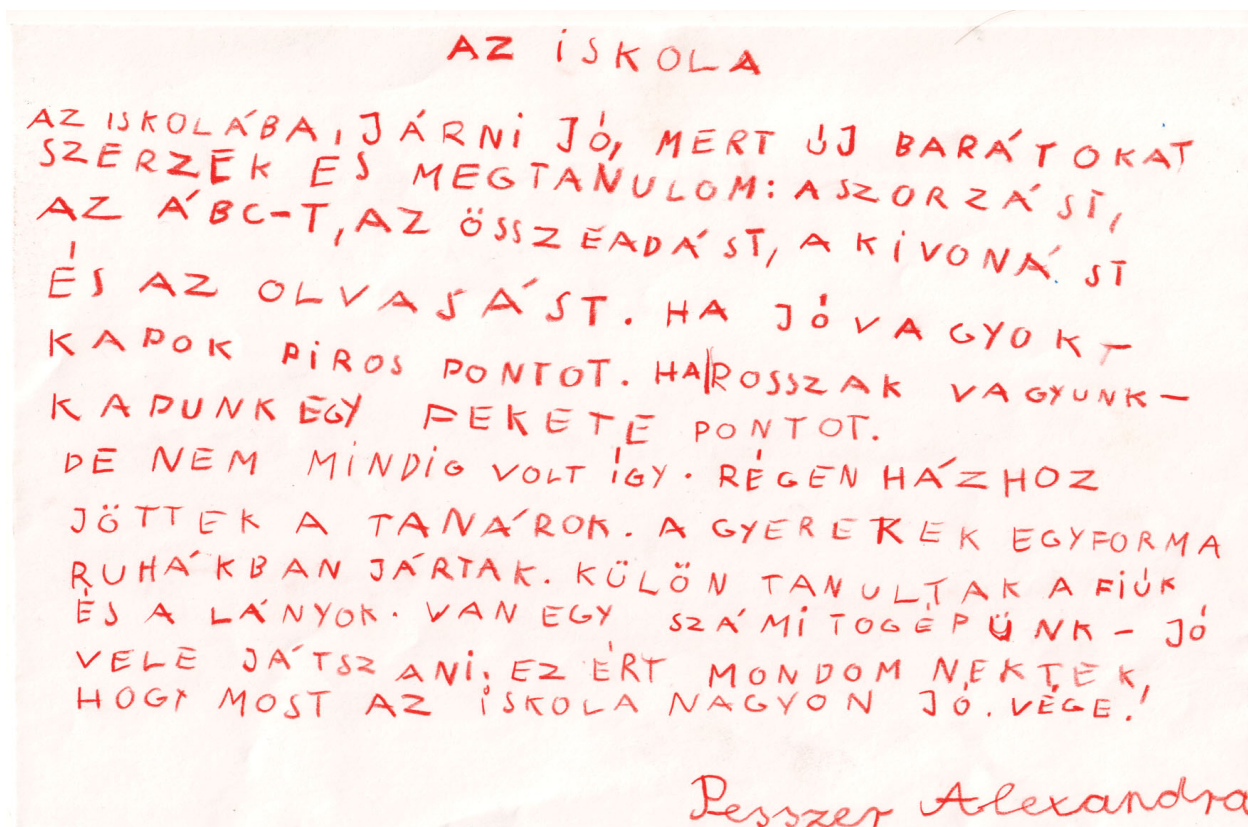 AZ iSKOLA
AZ ISKOLÁBA, JÁRNi JÓ, MERT ÚJ BARÁTOKAT
SZERZEK ES MEGTANULOM: A SZORZÁST,
AZ ÁBC-T, AZ ÖSSZEADÁST, A KiVONÁST
ÉS AZ OLVASÁST. HA JÓ VAGYOK T
KAPOK PiROS PONTOT. HA ROSSZAK VAGYUNK-
KAPUNK EGY FEKETE PONTOT.
DE NEM MiNDiG VOLT ÍGY. RÉGEN HÁZHOZ
JÖTTEK A TANÁROK. A GYEREKEK EGYFORMA
RUHÁKBAN JÁRTAK. KÜLÖN TANULTAK A FiÚK
ÉS A LÁNYOK. VAN EGY SZÁMiTOGÉPÜNK - JÓ
VELE JÁTSZANi. EZ ÉRT MONDOM NEKTEK,
HOGY MOST AZ iSKOLA NAGYON JÓ. VÉGE!
Pesszer Alexandra